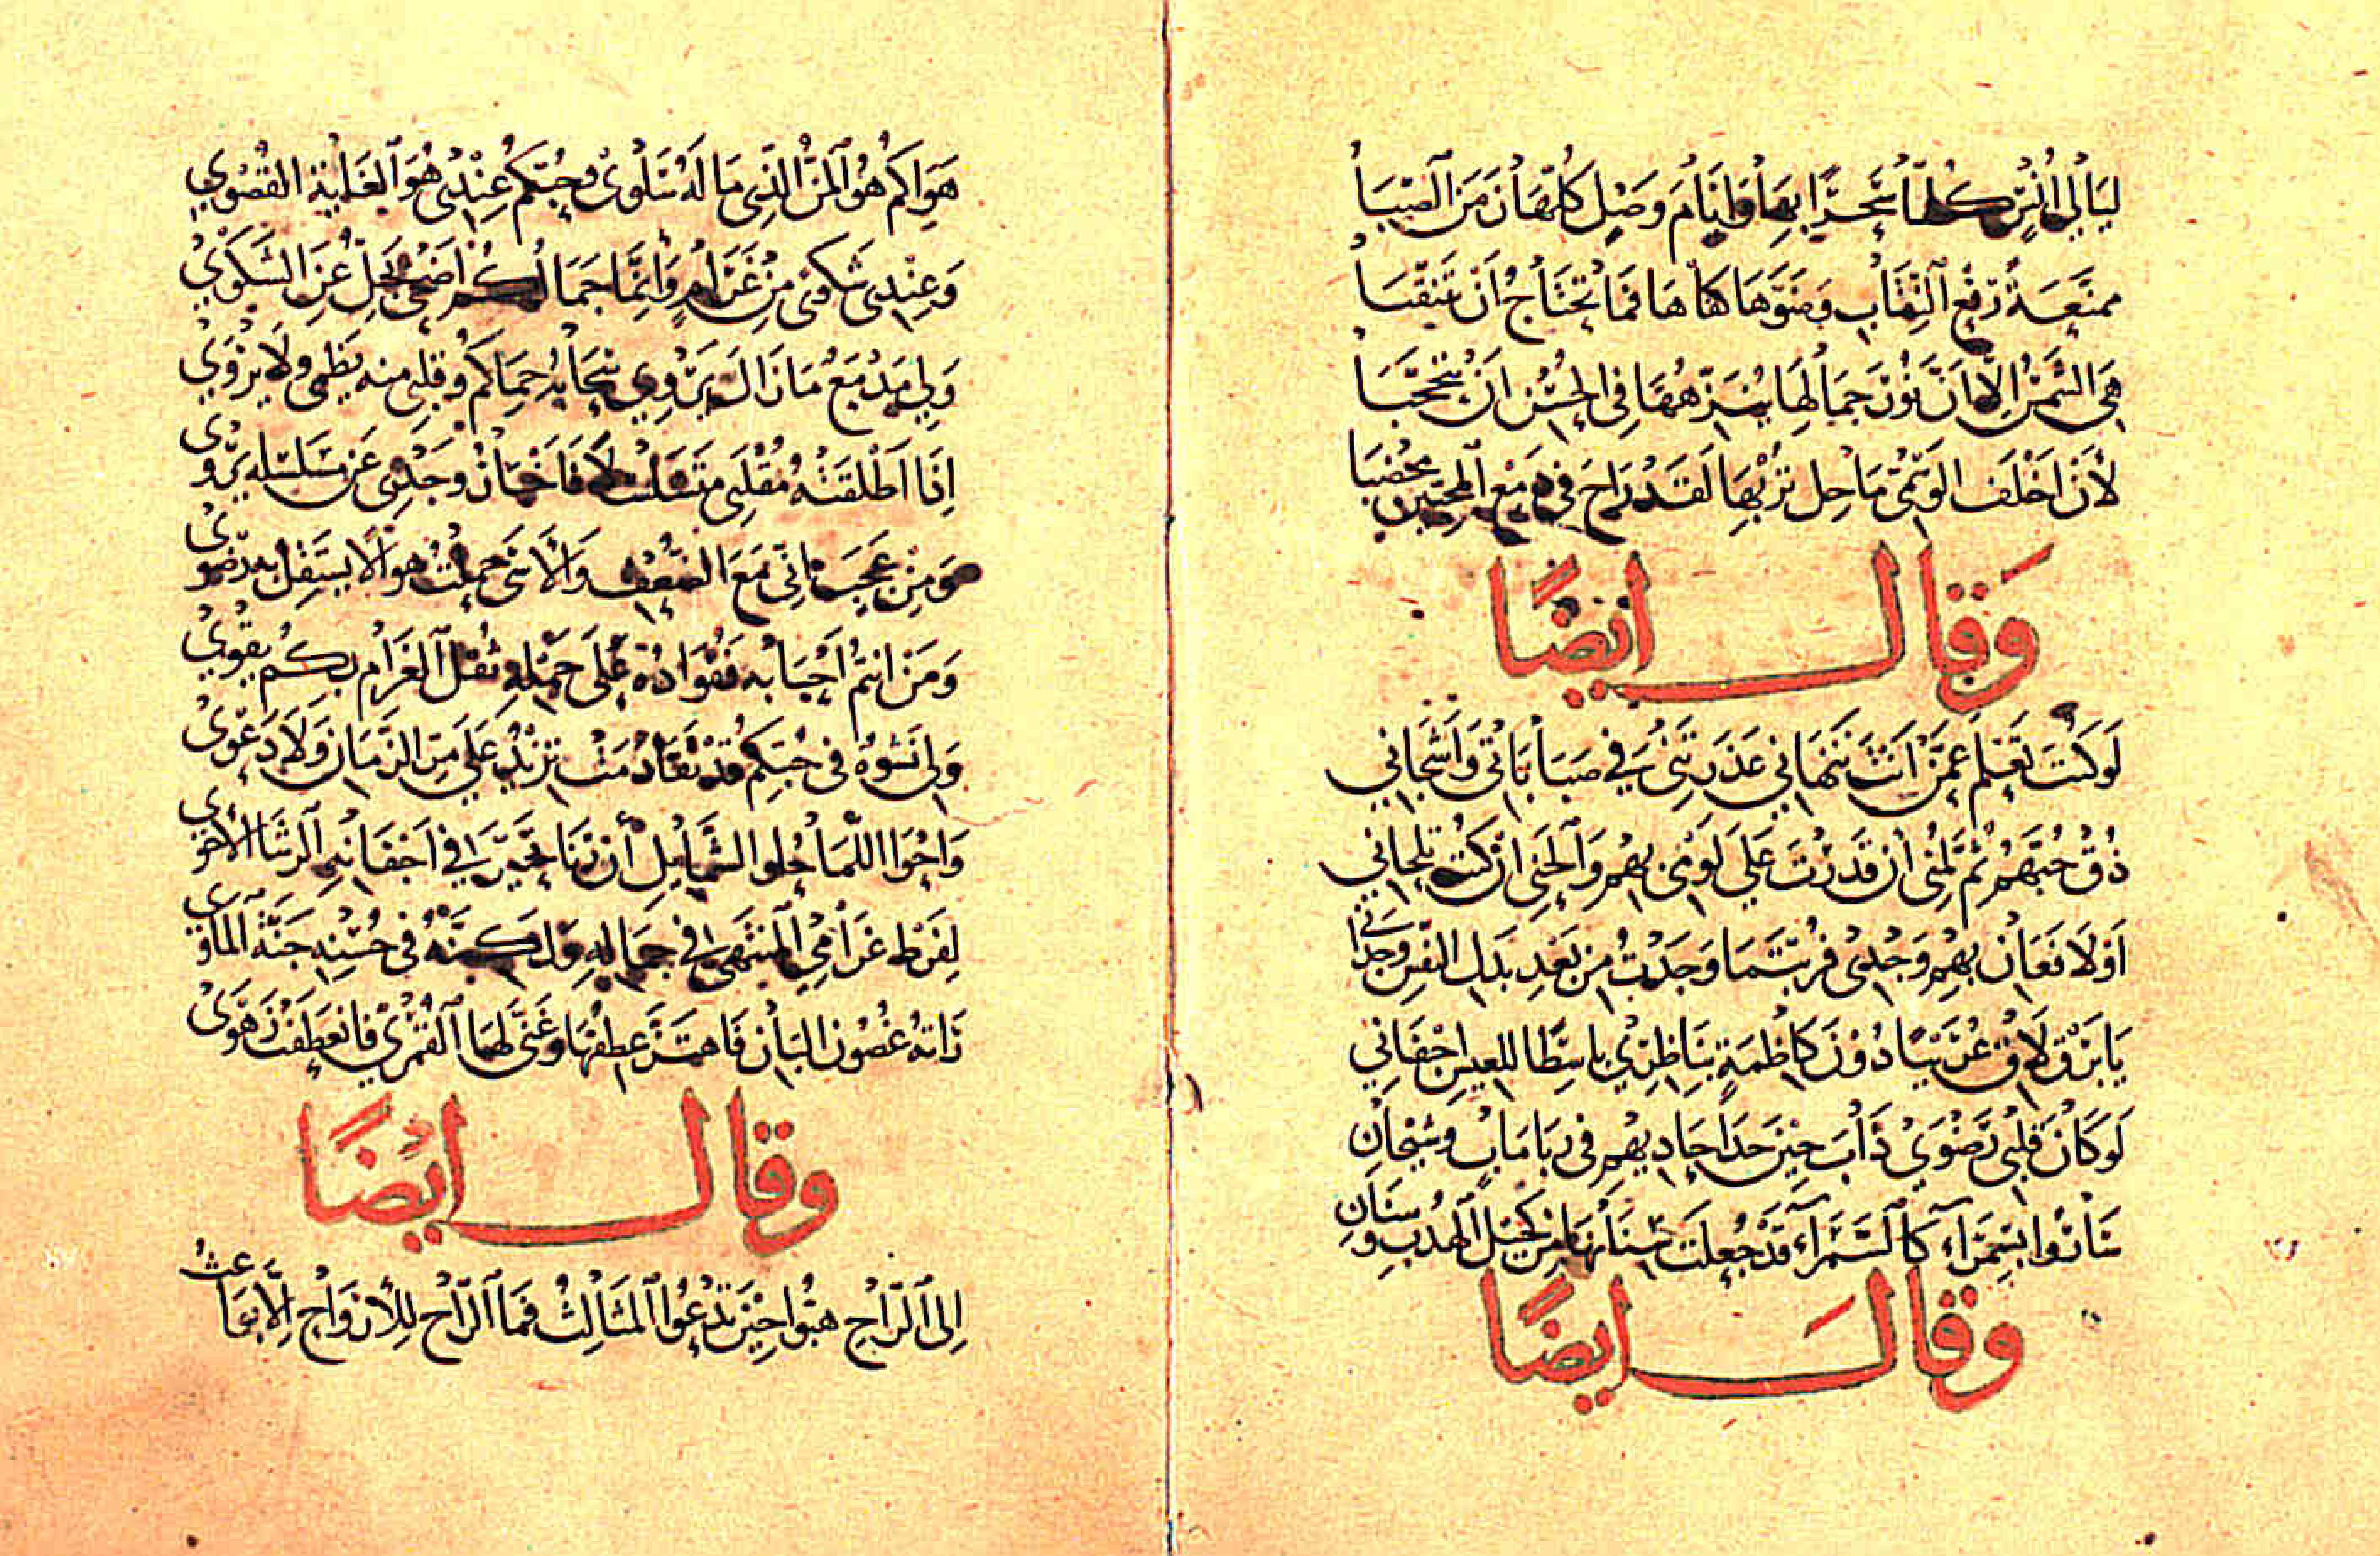 ليالي أنس كلها سحر بها وأيام وصل كلهان من الصبا
ممنعة رفع النقاب وضوها كفاها فما تحتاج أن تتنقبا
هي الشمس الا ان نور جمالها ينزهها في الحسن ان تتحجبا
لأن اخلف الوسمي ماحل تربها لقد راح في دمع المحبين مخصبا
وقال ايضا
لو كنت تعلم عمن أنت تنهاني عذرتني في صباباتي وأشجاني
ذق حبهم ثم لمني أن قدرت على لومي بهم والحني ان كنت تلحاني
أولا فعان بهم وجدى فربتما وجدت من بعد بذل النفس وجداني
يا برق لاق عريبا دون كاظمة بناظري باسطا للعيس اجفاني
لو كان قلبي رضوي ذاب حين حدا حاد بهم في ربا مابـ وشيحان
سانوا بسمرآء كالسمرآء قد جعلت سنانها من كحيل الهدب وسنان
وقال ايضا
هواكم هو المن الذي ما له سلوى وحبكم عندي هو الغاية القصوي
وعندي شكوى من غرام وانما جمالكم أضحى يجل عن الشكوي
ولي مدمع ما زال يروي سحابه حماكم وقلبي منه يظمى ولا يروي
إذا اطلقته مقلتي متسلسلا فاخبار وجدى عن تسلسله يروى
ومن عجب اني مع الضعف والأسى حملت هوا لا يستقل به رضوى
ومن انتم أحبابه ففؤاده على حمله ثقل الغرام بكم يقوي
ولى نشوة في حبكم قد تقادمت تزيد على مر الزمان ولا دعوى
واحوا اللما حلوا الشمايل أن رنا تحير في اجفانه الرشا الأحوى
لفرط غرامي المنتهى في جماله ولكنه في حسنه جنة المأوى
راته غصون البان فاهتز عطفها وغنى لها القمري فانعطفت زهوى
وقال ايضا
إلى الراح هبوا حين تدعوا المثالث فما الراح للأرواح الا بواعث